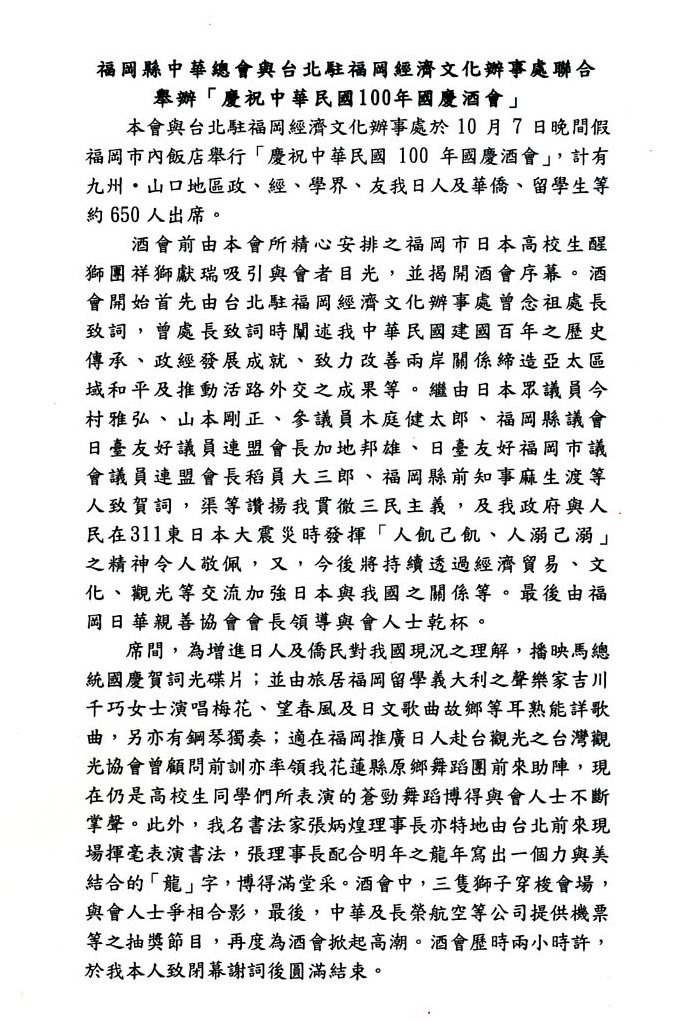 福岡縣中華總會與台北駐福岡經濟文化辦事處聯合
舉辦「慶祝中華民國100年國慶酒會」
本會與台北駐福岡經濟文化辦事處於 10 月 7 日晚間假
福岡市內飯店舉行「慶祝中華民國 100 年國慶酒會」，計有
九州・山口地區政、經、學界、友我日人及華僑、留學生等
約 650 人出席。
酒會前由本會所精心安排之福岡市日本高校生醒
獅團祥獅獻瑞吸引與會者目光，並揭開酒會序幕。酒
會開始首先由台北駐福岡經濟文化辦事處曾念祖處長
致詞，曾處長致詞時闡述我中華民國建國百年之歷史
傳承、政經發展成就、致力改善兩岸關係締造亞太區
域和平及推動活路外交之成果等。繼由日本眾議員今
村雅弘、山本剛正、參議員木庭健太郎、福岡縣議會
日臺友好議員連盟會長加地邦雄、日臺友好福岡市議
會議員連盟會長稻員大三郎、福岡縣前知事麻生渡等
人致賀詞，渠等讚揚我貫徹三民主義，及我政府與人
民在311東日本大震災時發揮「人飢己飢、人溺己溺」
之精神令人敬佩，又，今後將持續透過經濟貿易、文
化、觀光等交流加強日本與我國之關係等。最後由福
岡日華親善協會會長領導與會人士乾杯。
席間，為增進日人及僑民對我國現況之理解，播映馬總
統國慶賀詞光碟片；並由旅居福岡留學義大利之聲樂家吉川
千巧女士演唱梅花、望春風及日文歌曲故鄉等耳熟能詳歌
曲，另亦有鋼琴獨奏；適在福岡推廣日人赴台觀光之台灣觀
光協會曾顧問前訓亦率領我花蓮縣原鄉舞蹈團前來助陣，現
在仍是高校生同學們所表演的蒼勁舞蹈博得與會人士不斷
掌聲。此外，我名書法家張炳煌理事長亦特地由台北前來現
場揮毫表演書法，張理事長配合明年之龍年寫出一個力與美
結合的「龍」字，博得滿堂采。酒會中，三隻獅子穿梭會場，
與會人士爭相合影，最後，中華及長榮航空等公司提供機票
等之抽獎節目，再度為酒會掀起高潮。酒會歷時兩小時許，
於我本人致閉幕謝詞後圓滿結束。